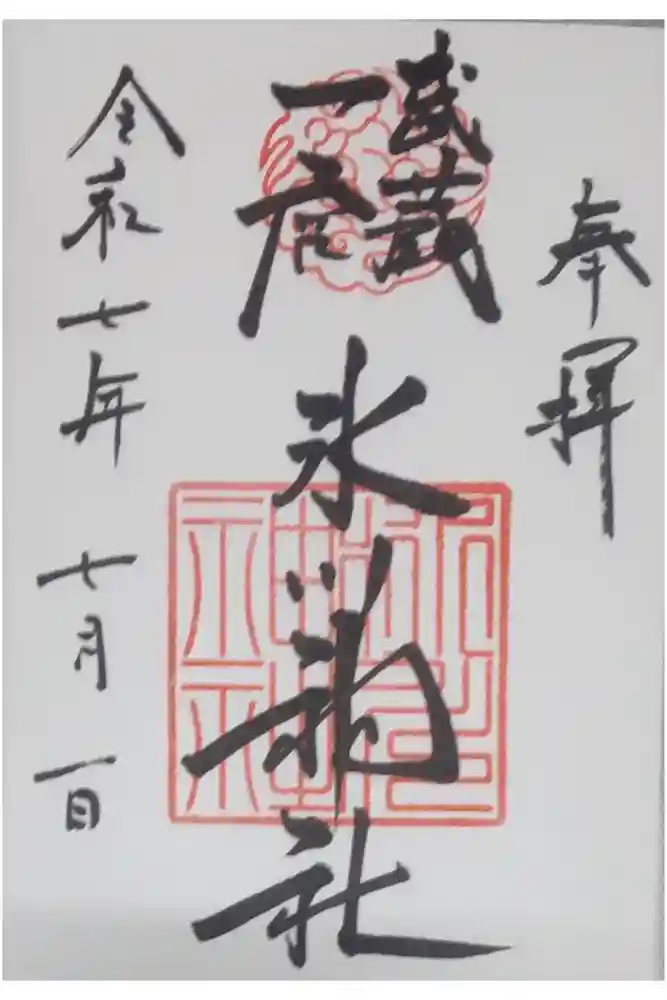 奉拝
武蔵
一宮
氷川神社
令和七年 七月一日